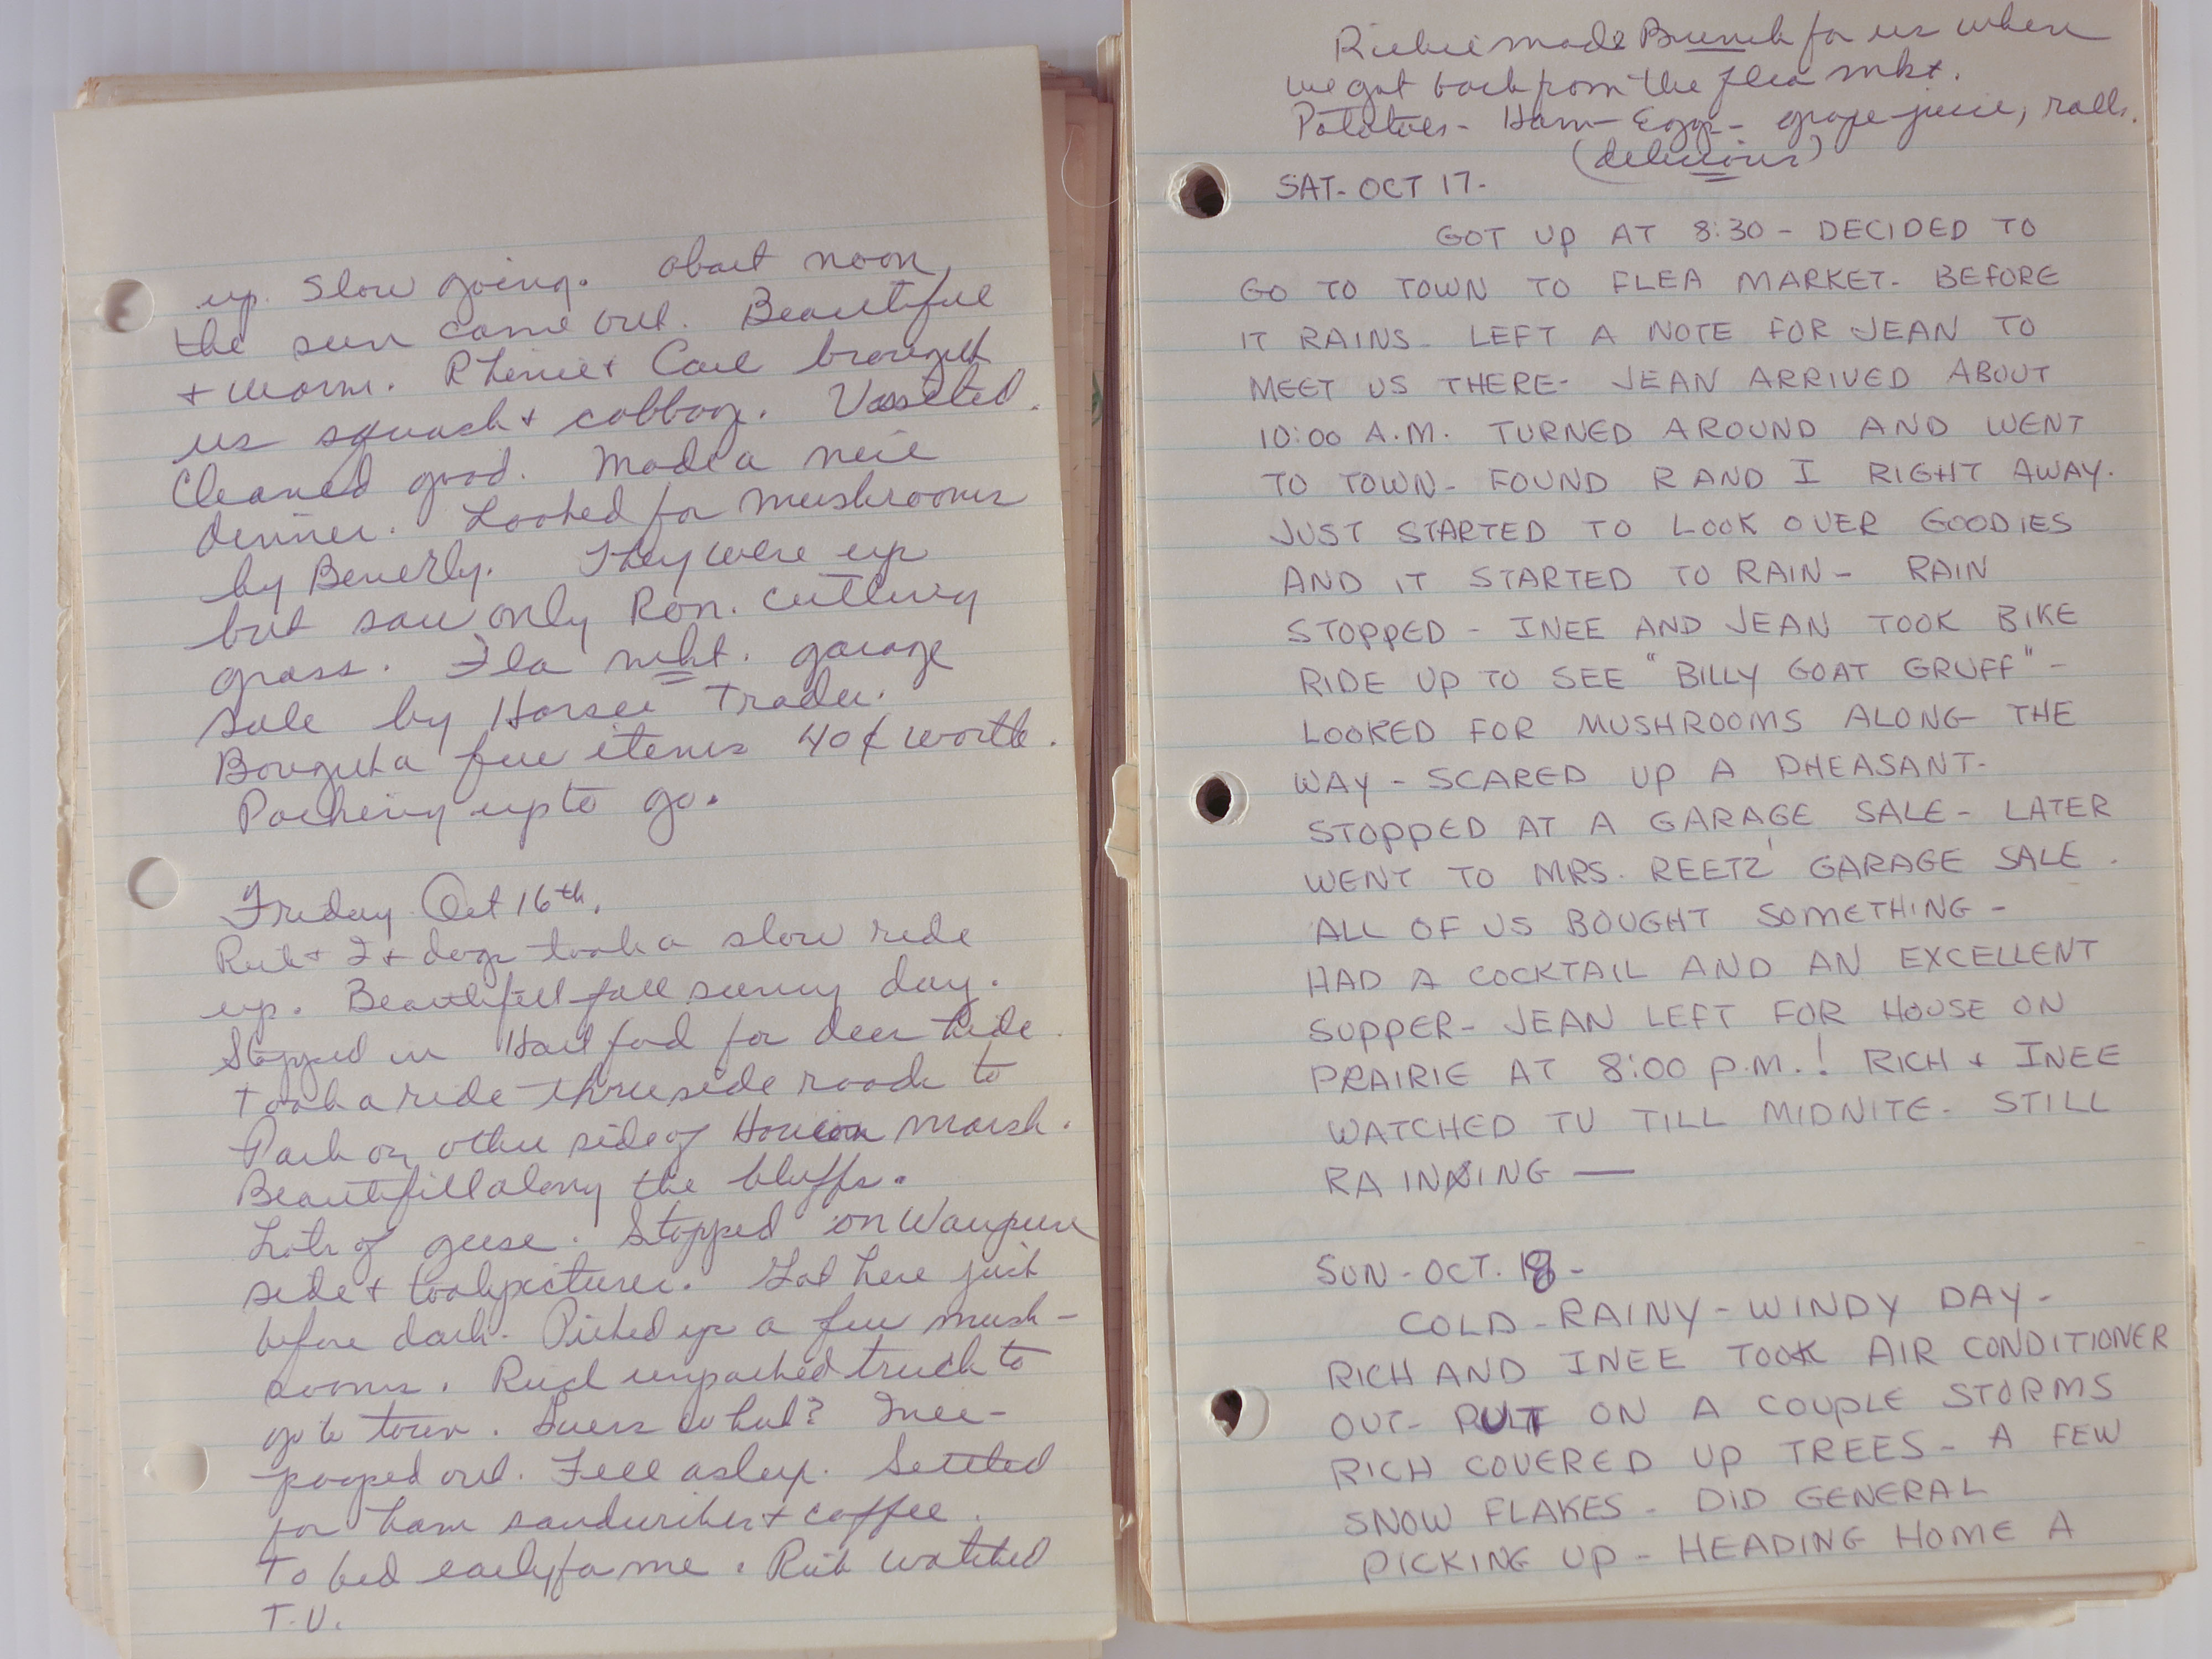 up. Slow going. about noon,
the sun came out. Beautiful
+ warm. Rhenie + Carl brought
us squash + cabbag. Vissited.
Cleaned good. Made a nice
dinner. Looked for mushrooms
by Beverly. They were up
but saw only Ron. cutting
grass. Fla mkt. garage
sale by Horse Trader.
Bought a few items 40¢ worth.
Packing up to go.
Friday Oct 16th.
Rich + I + dogs took a slow ride
up. Beautifull fall sunny day.
Stopped in Hartford for deer hide
+ took a ride thru side roads to
Park on other side of Horicon marsh.
Beautifull along the bluffs.
Lots of geese. Stopped on Waupun
side + took pictures. Got here just
before dark. Picked up a few mush-
rooms. Rich unpacked truck to
go to town. Guess what? Inee-
pooped out. Fell asleep. Settled
for ham sandwiches + coffee.
To bed early for me. Rich watched
T.V.
Richie made Brunch for us when
we got back from the flea mkt.
Potatoes - Ham - Eggs - grape juice, rolls.
(delicious)
SAT- OCT 17-
GOT UP AT 8:30 - DECIDED TO
GO TO TOWN TO FLEA MARKET- BEFORE
IT RAINS- LEFT A NOTE FOR JEAN TO
MEET US THERE- JEAN ARRIVED ABOUT
10:00 A.M. TURNED AROUND AND WENT
TO TOWN- FOUND R AND I RIGHT AWAY.
JUST STARTED TO LOOK OVER GOODIES
AND IT STARTED TO RAIN - RAIN
STOPPED - INEE AND JEAN TOOK BIKE
RIDE UP TO SEE "BILLY GOAT GRUFF" -
LOOKED FOR MUSHROOMS ALONG THE
WAY - SCARED UP A PHEASANT-
STOPPED AT A GARAGE SALE - LATER
WENT TO MRS. REETZ' GARAGE SALE.
ALL OF US BOUGHT SOMETHING -
HAD A COCKTAIL AND AN EXCELLENT
SUPPER- JEAN LEFT FOR HOUSE ON
PRAIRIE AT 8:00 P.M.! RICH + INEE
WATCHED TV TILL MIDNITE- STILL
RAINING —
SUN - OCT. 18 -
COLD - RAINY - WINDY DAY -
RICH AND INEE TOOK AIR CONDITIONER
OUT- PUT ON A COUPLE STORMS
RICH COVERED UP TREES - A FEW
SNOW FLAKES - DID GENERAL
PICKING UP - HEADING HOME A